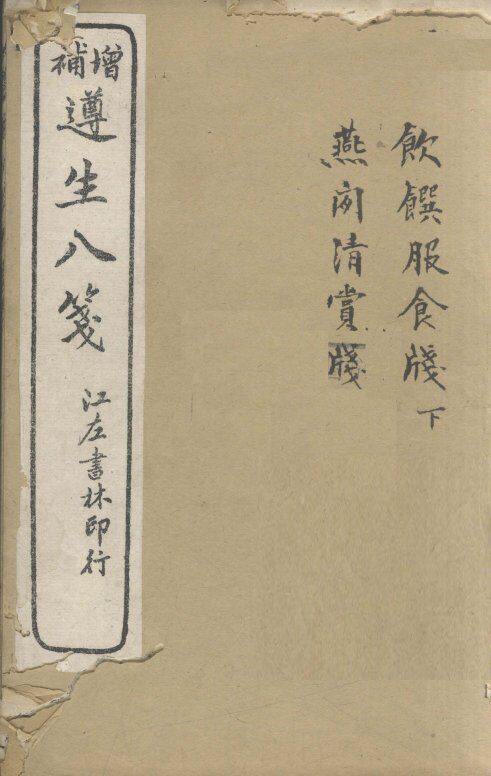 飲饌服食牋下
燕閒清賞牋
增補
遵生八箋
江左書林印行